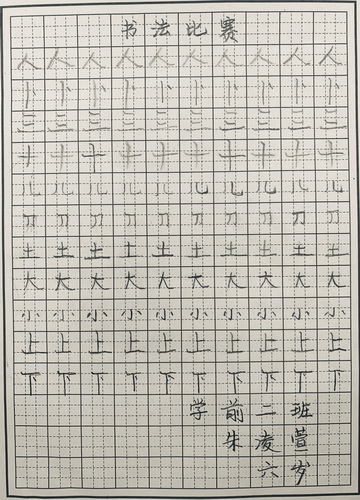 书法比赛
人人人人人人人人人人
卜卜卜卜卜卜卜卜卜卜
三三三三三三三三三三
十十十十十十十十十十
儿儿儿儿儿儿儿儿儿儿
刀刀刀刀刀刀刀刀刀刀
土土土土土土土土土土
大大大大大大大大大大
小小小小小小小小小小
上上上上上上上上上上
下下下下下下下下下下
学前二班
朱凌萱
六岁